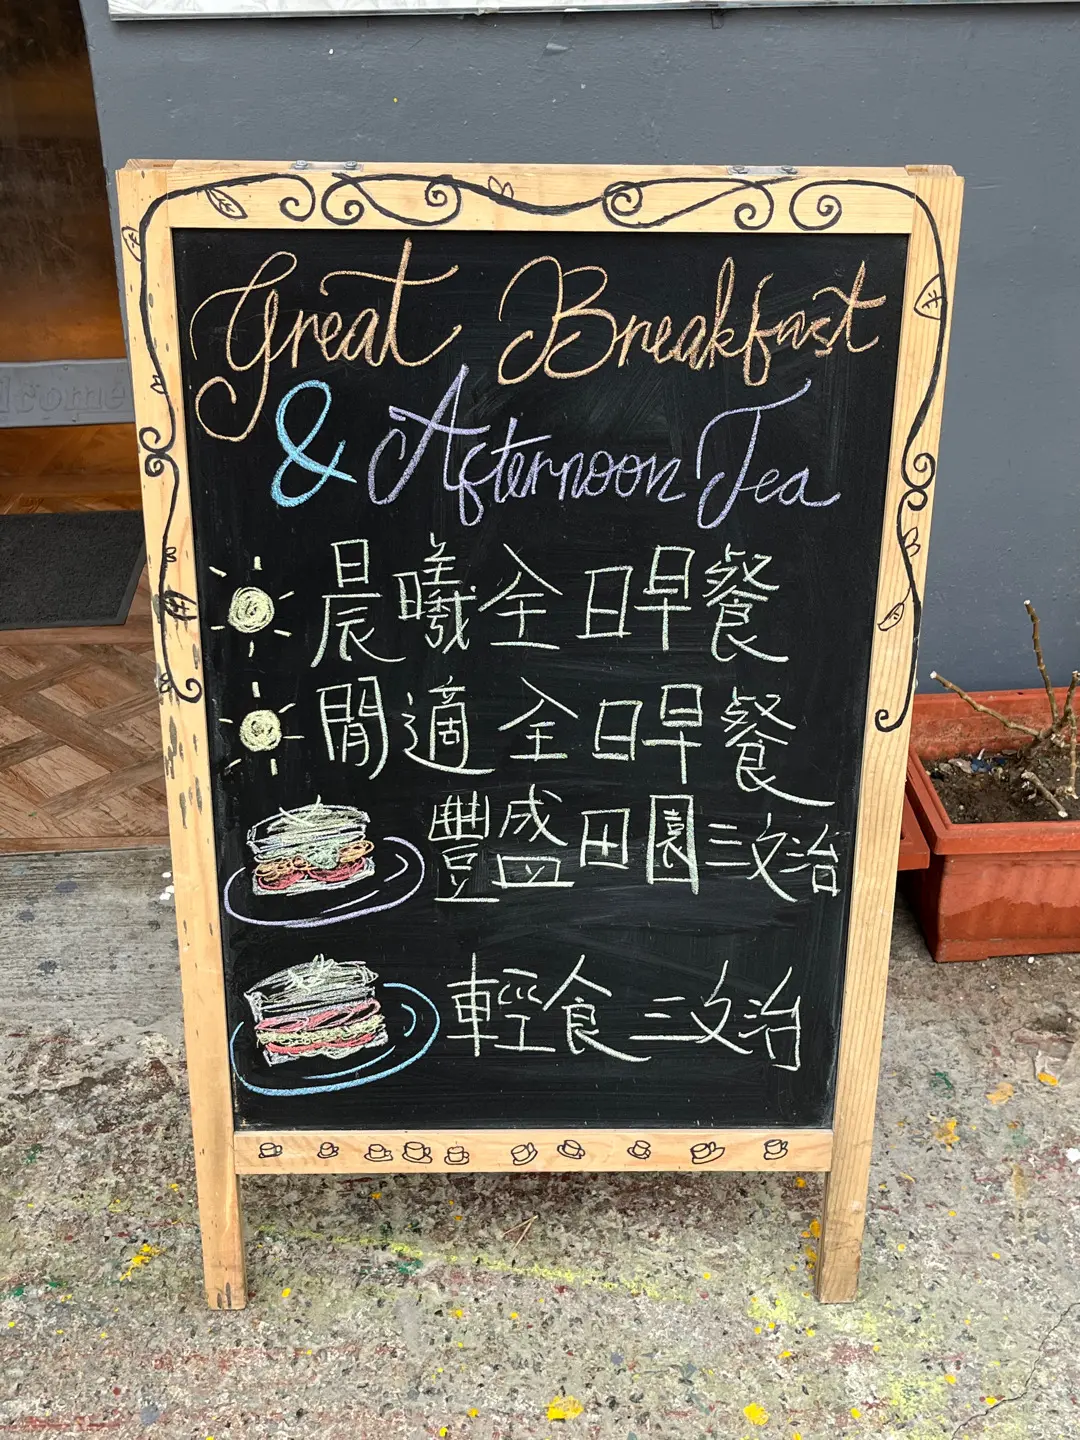 Great Breakfast
& Afternoon Tea
晨曦全日早餐
閒適全日早餐
豐盛田園三文治
輕食三文治